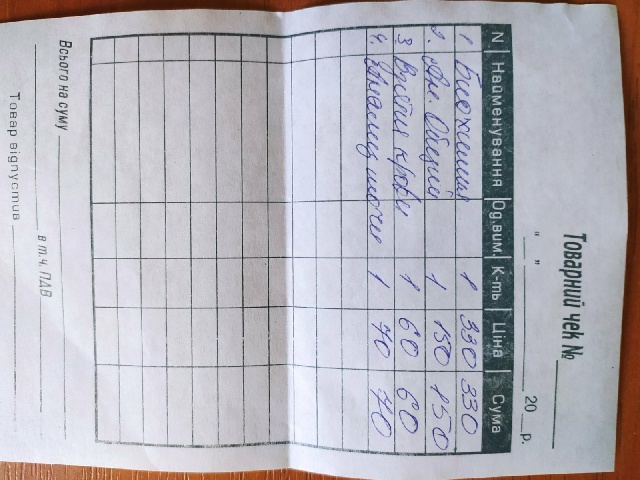 Товарний чек №
" " 20 р.
N Найменування Од.вим. К-ть Ціна Сума
1 Биохимия 1 330 330
2. Ан. Общий 1 150 150
3 Взятия крови 1 60 60
4. Анализ мочи 1 70 70
Всього на суму в т.ч. ПДВ
Товар відпустив